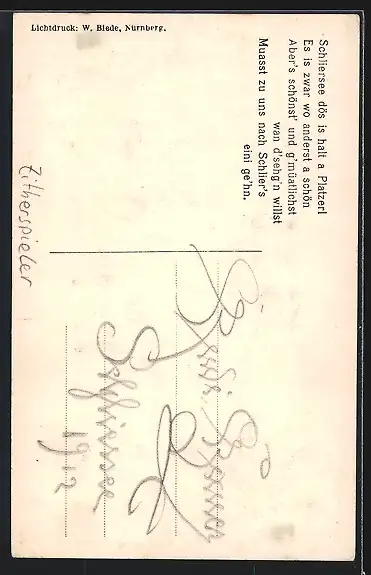 Lichtdruck: W. Biede, Nürnberg.
Schliersee dös is halt a Platzerl
Es is zwar wo anderst a schön
Aber's schönst' und g'müatlichst
wan d'sehg'n willst
Muasst zu uns nach Schlier's
eini ge'hn.
Zitherspieler
Schliersee
1912